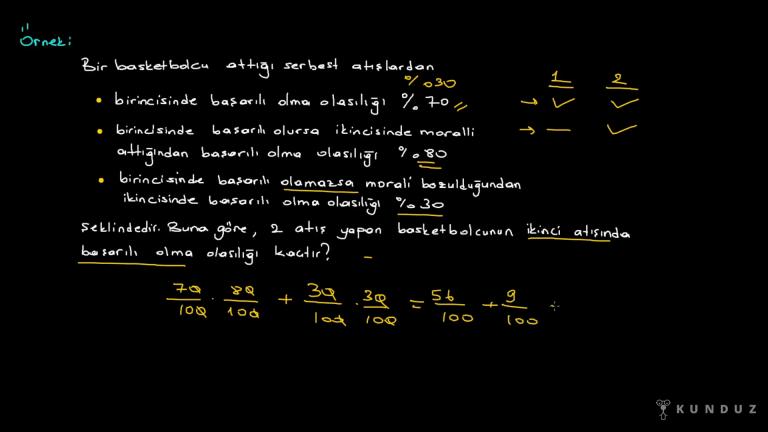 Örnek:
Bir basketbolcu attığı serbest atışlardan
% 30
• birincisinde başarılı olma olasılığı % 70
• birincisinde başarılı olursa ikincisinde moralli
attığından başarılı olma olasılığı % 80
• birincisinde başarılı olamazsa morali bozulduğundan
ikincisinde başarılı olma olasılığı % 30
şeklindedir. Buna göre, 2 atış yapan basketbolcunun ikinci atışında
başarılı olma olasılığı kaçtır?
1 2
→ ✓ ✓
→ — ✓
70/100 · 80/100 + 30/100 · 30/100 = 56/100 + 9/100
KUNDUZ